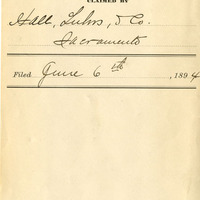 CLAIMED BY
Hall, Luhrs, & Co.
Sacramento
Filed June 6th, 1894